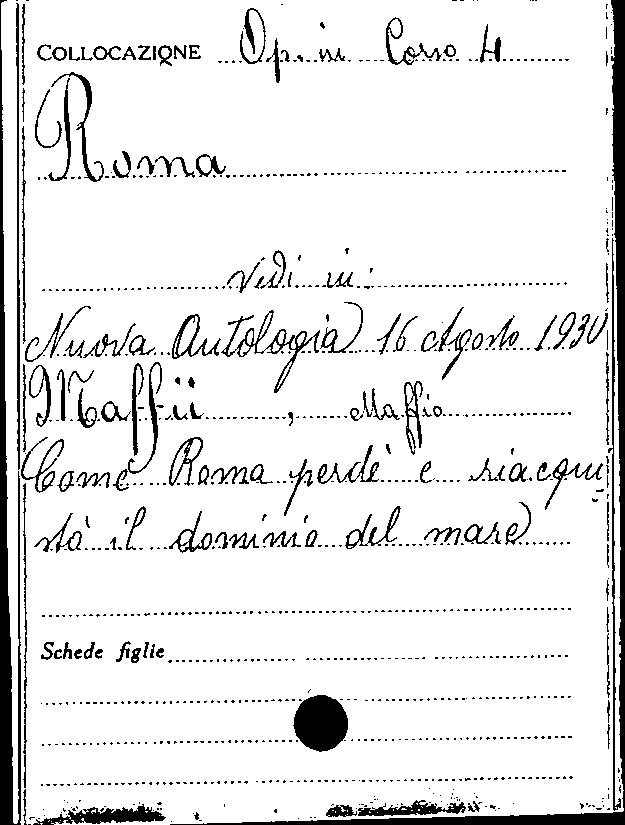 COLLOCAZIONE Op. in Corso 4
Roma
Vedi in:
Nuova Antologia 16 Agosto 1930
Maffii, Maffio
Come Roma perdé e riacqui
stò il dominio del mare
Schede figlie